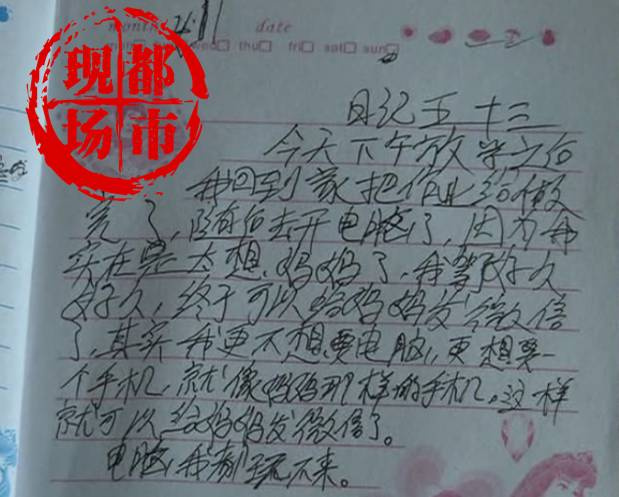 month 11 date
wed thu fri sat sun
都市
现场
日记五十三
今天下午放学之后
我回到家把作业给做
完了,随后去开电脑了,因为我
实在是太想妈妈了,我等了好久
好久,终于可以给妈妈发微信
了,其实我更不想要电脑,更想要一
个手机,就像妈妈那样的手机。这样
就可以给妈妈发微信了。
电脑我都玩不来。